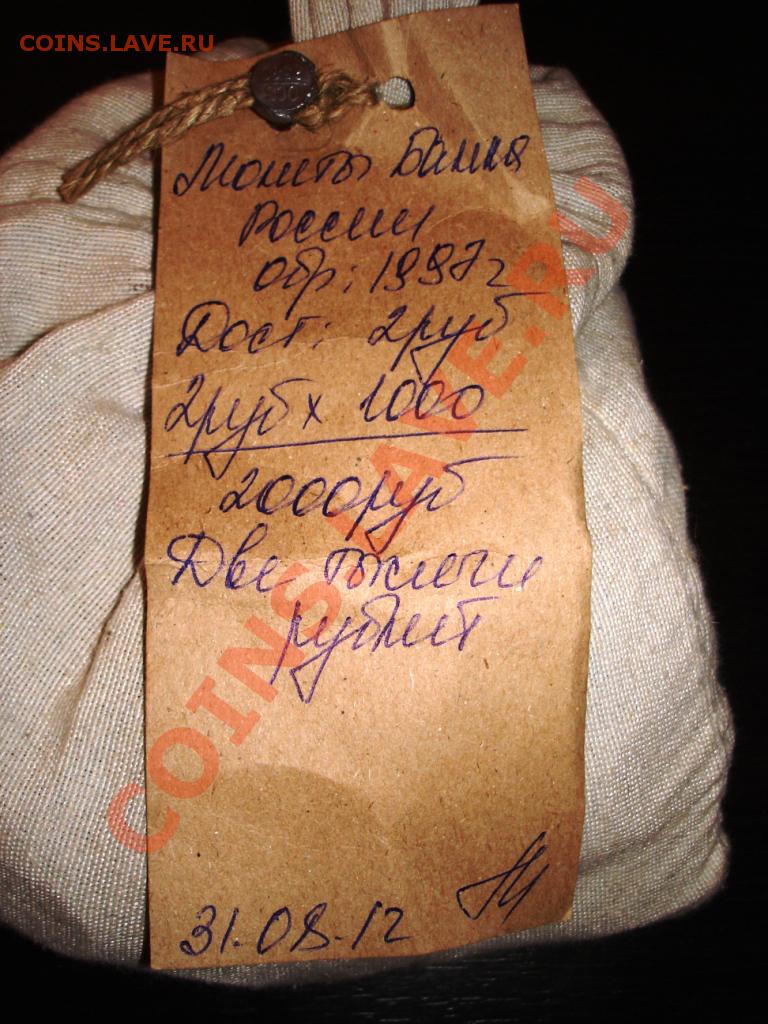 COINS.LAVE.RU
Монеты Банка
России
обр: 1997г
Дост: 2руб
2руб х 1000
2000руб
Две тысячи
рублей
31.08.12
COINS.LAVE.RU